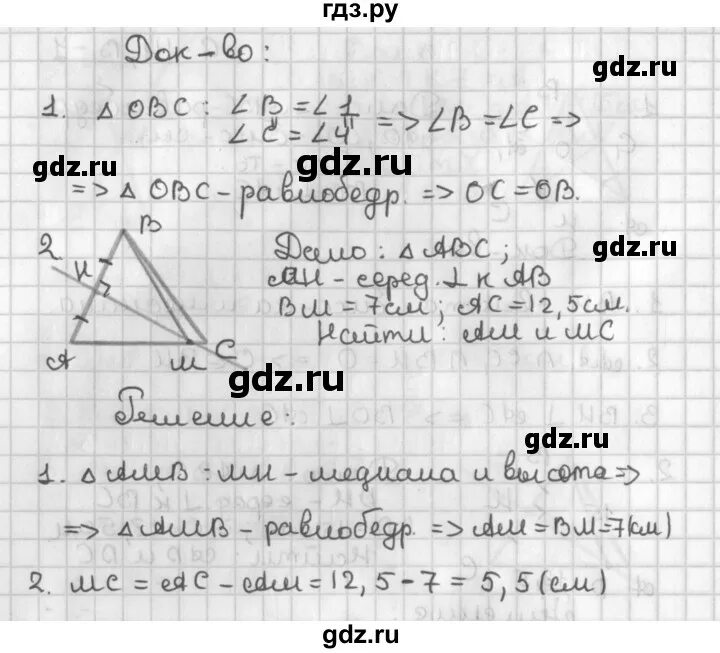 гдз.ру
Док-во:
gdz.ru
1. △ OBC: ∠B = ∠1
∠C = ∠4 => ∠B = ∠C =>
=> △ OBC - равнобедр. => OC = OB.
gdz.ru
2
B
H
A
M
C
Дано: △ ABC;
MH - серед. ⊥ к AB
BM = 7 см; AC = 12,5 см.
Найти: AM и MC
gdz.ru
Решение:
gdz.ru
1. △ AMB: MH - медиана и высота =>
=> △ AMB - равнобедр. => AM = BM = 7(см)
2. MC = AC - AM = 12,5 - 7 = 5,5 (см)
gdz.ru
gdz.ru